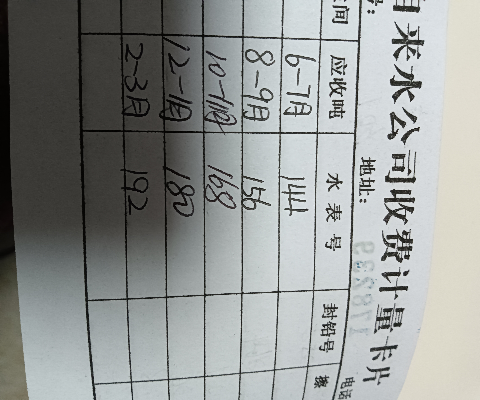 自来水公司收费计量卡片
号：
地址：
间 应收吨 水表号 封铅号
电话
6-7月 144
8-9月 156
10-11月 168
12-1月 180
2-3月 192